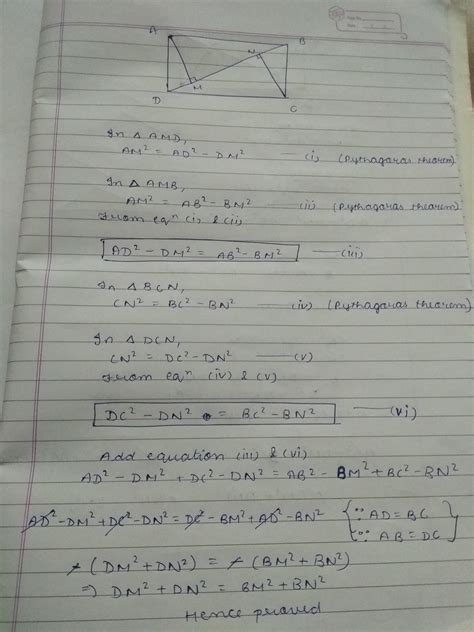 A
B
N
M
D
C
In △ AMD,
AM² = AD² - DM² —— (i) (Pythagoras theorem)
In △ AMB,
AM² = AB² - BN² —— (ii) (Pythagoras theorem)
From eqⁿ (i) & (ii)
AD² - DM² = AB² - BM² —— (iii)
In △ BCN,
CN² = BC² - BN² —— (iv) (Pythagoras theorem)
In △ DCN,
CN² = DC² - DN² —— (v)
From eqⁿ (iv) & (v)
DC² - DN² = BC² - BN² —— (vi)
Add equation (iii) & (vi)
AD² - DM² + DC² - DN² = AB² - BM² + BC² - BN²
AD² - DM² + DC² - DN² = DC² - BM² + AD² - BN² {∵ AD = BC
∵ AB = DC}
-(DM² + DN²) = -(BM² + BN²)
⇒ DM² + DN² = BM² + BN²
Hence proved